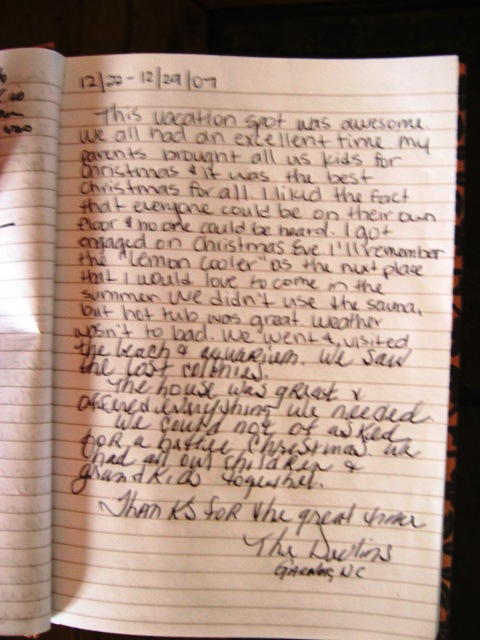 12/22 - 12/29/07
This vacation spot was awesome.
We all had an excellent time my
parents brought all us kids for
Christmas & it was the best
Christmas for all. I liked the fact
that everyone could be on their own
floor & no one could be heard. I got
engaged on Christmas Eve I'll remember
the "Lemon Cooler" as the next place
that I would love to come in the
summer. We didn't use the sauna,
but hot tub was great. Weather
wasn't to bad. We went & visited
the beach & aquarium. We saw
the lost colonies.
The house was great &
offered everything we needed.
We could not of asked
for a better Christmas. We
had all our children &
grandkids together.
Thanks for the great time
The
Garner, NC